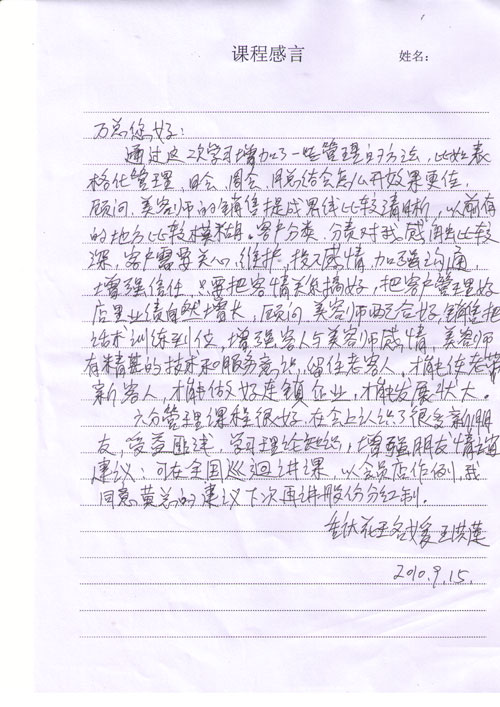 课程感言
姓名:
万总您好:
通过这次学习增加了一些管理的方法,比如表
格化管理,日会、周会、月总结会怎么开效果更佳,
顾问、美容师的销售提成界线比较清晰,以前有
的地方比较模糊。客户分类,分表对我感用比较
深,客户需要关心、维护,投入感情,加强沟通,
增强信任,只要把客情关系搞好,把客户管理好
店里业绩自然增长,顾问、美容师配合好,销售把
话术训练到位,增强客人与美容师感情,美容师
有精甚的技术和服务意识,留住老客人,才能使老带
新客人,才能做好连锁企业,才能发展状大。
六分管理课程很好,在会上认识了很多新朋
友,受益匪浅,学习理论知识,增强朋友情谊
建议:可在全国巡迴讲课,以会员店作例,我
同意黄总的建议下次再讲股份分红制。
王洪莲
2010.9.15.